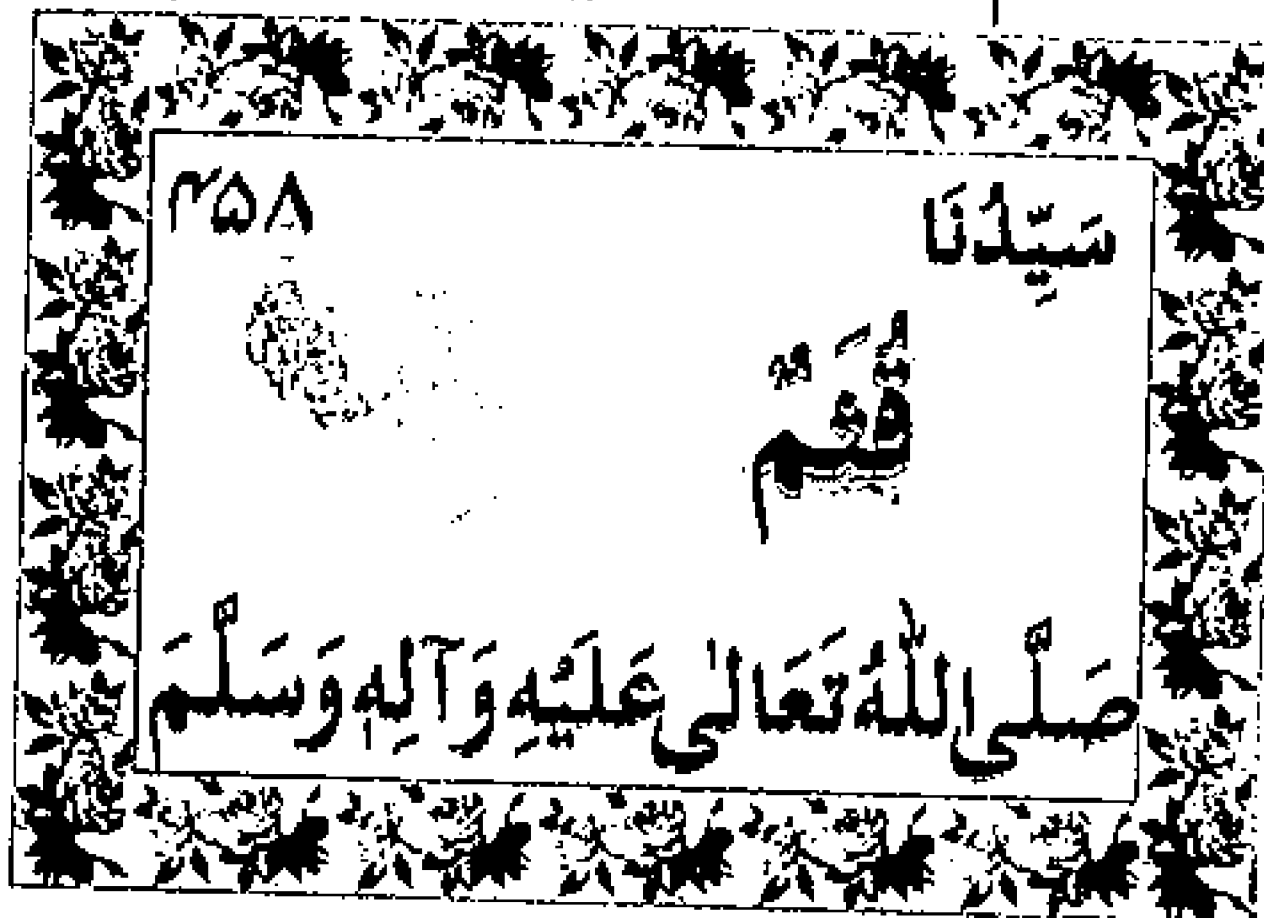 سَيِّدُنَا ۴۵۸
قُثَمٌ
صَلَّى اللهُ تَعَالٰى عَلَيْهِ وَآلِهٖ وَسَلَّمَ